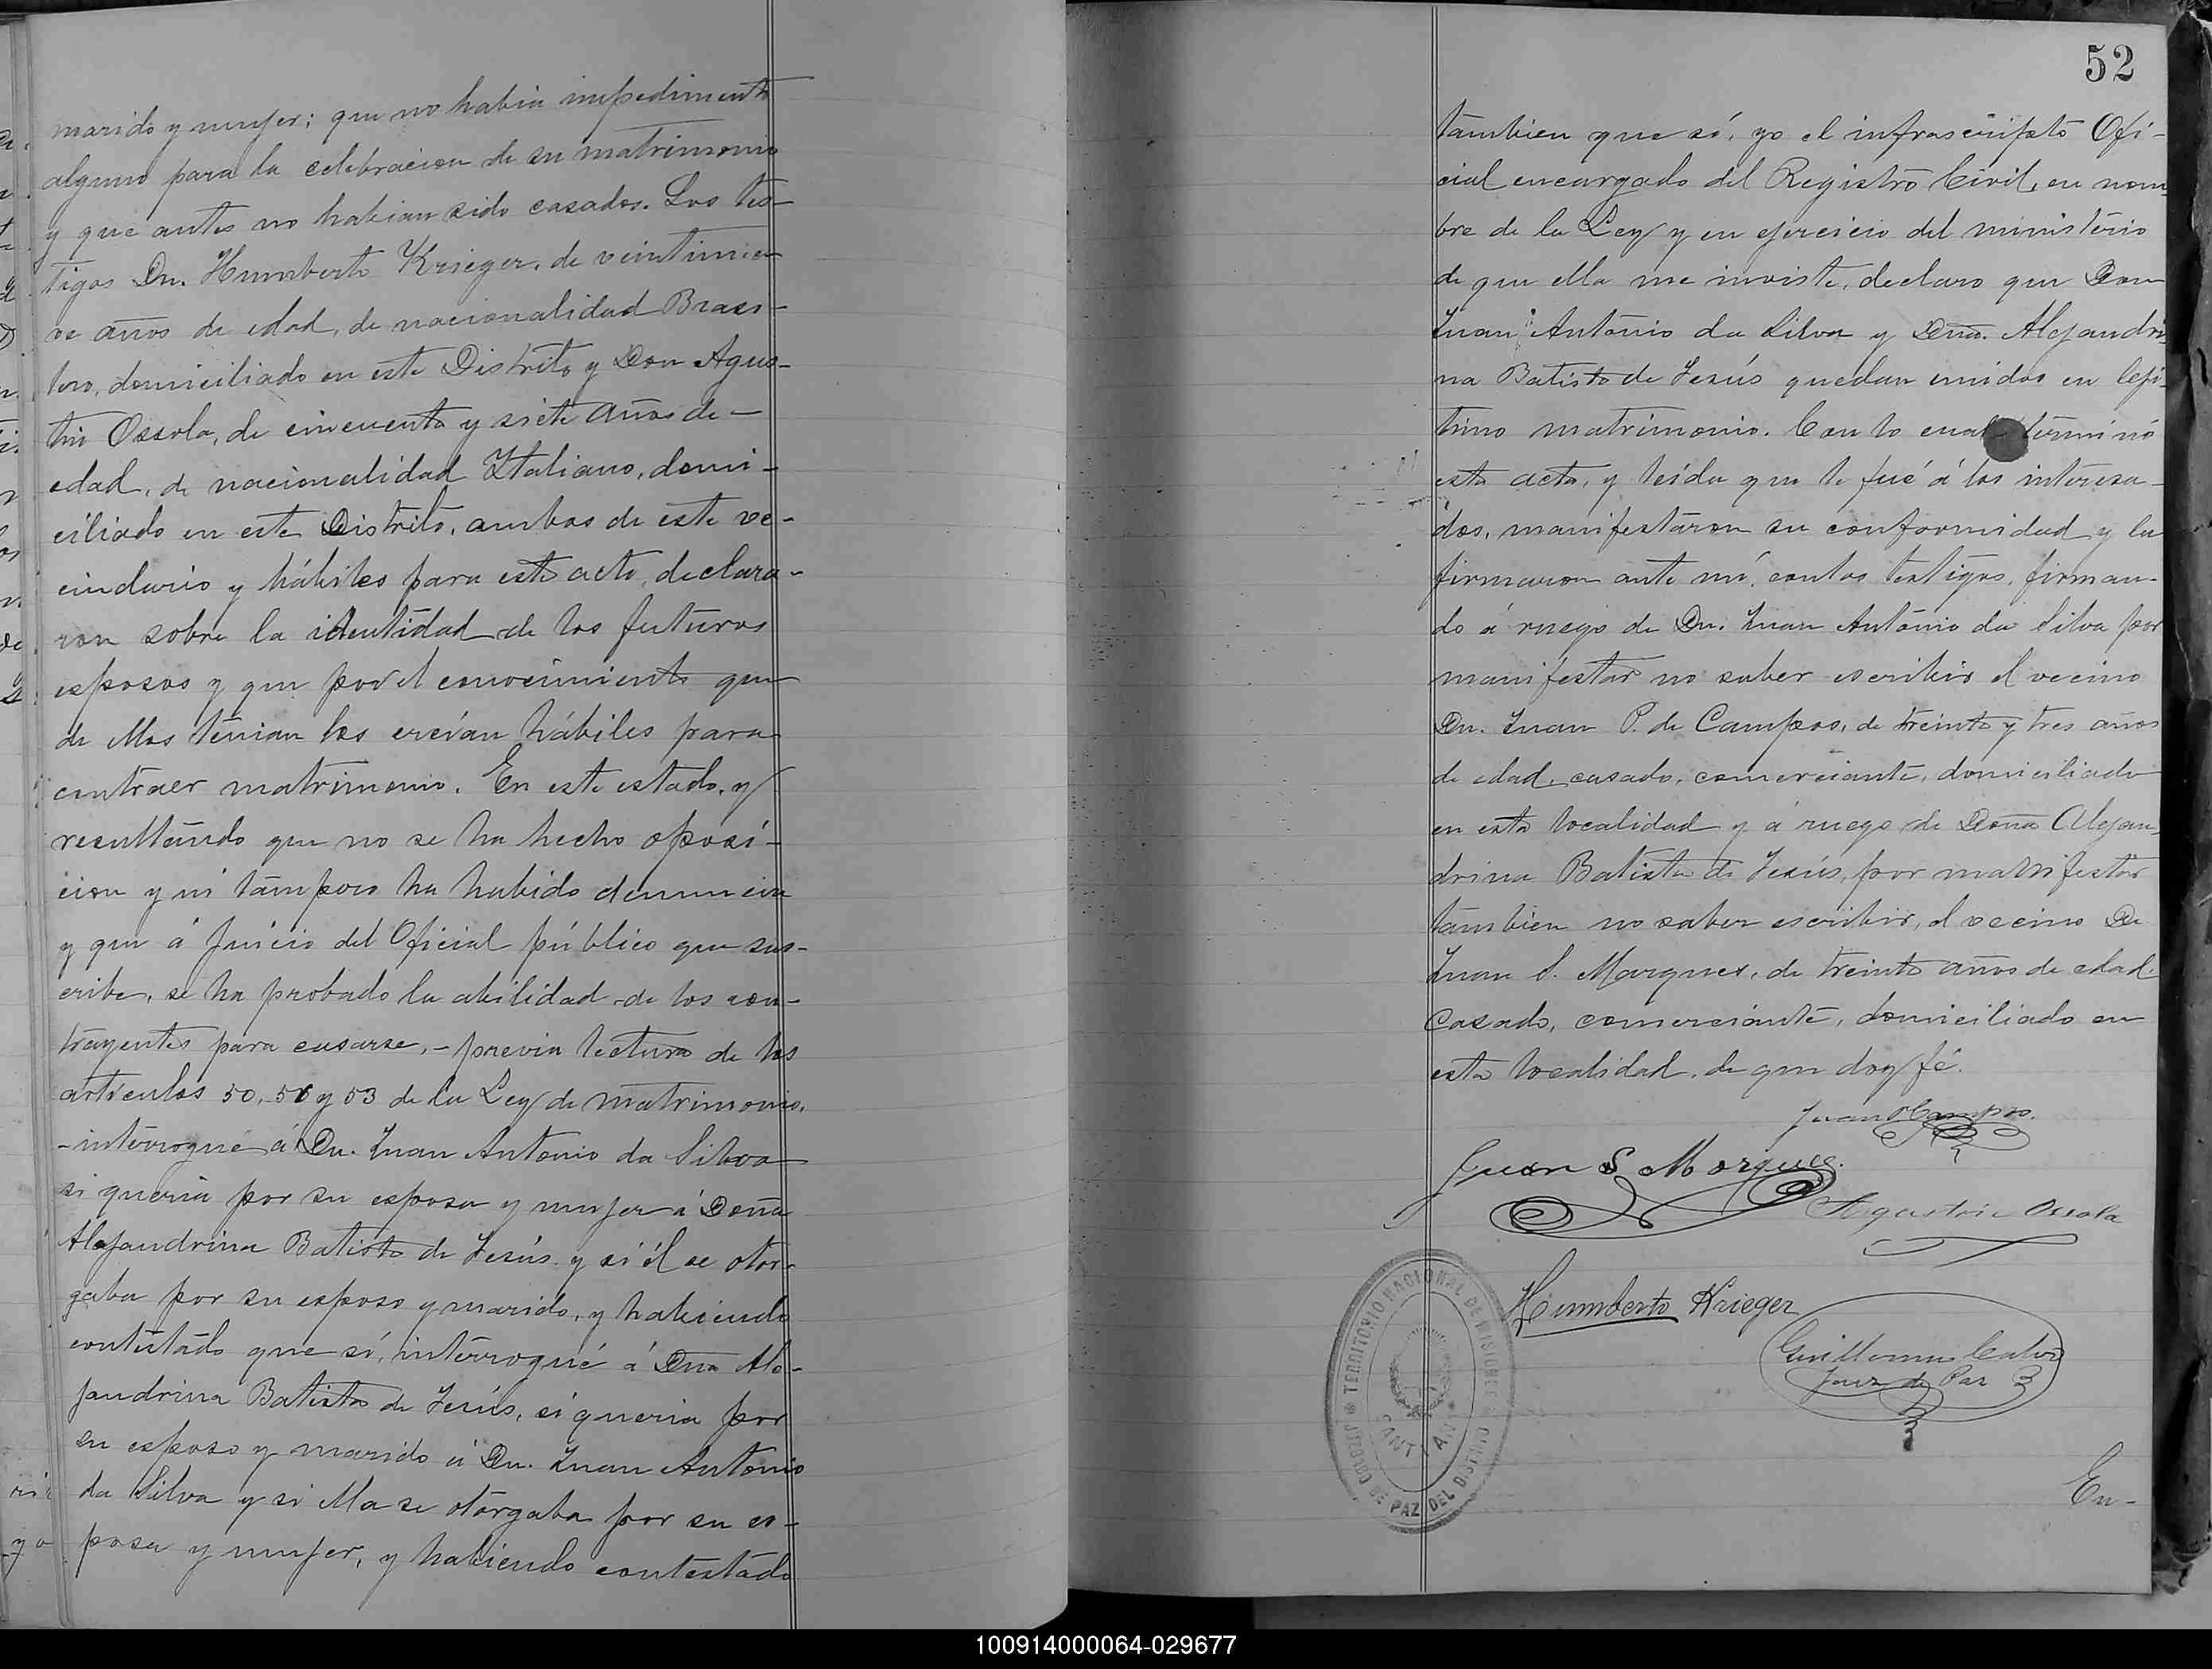 marido y mujer; que no habia impedimento
alguno para la celebracion de su matrimonio
y que antes no habian sido casados. Los tes-
tigos Dn. Humberto Krieger, de veintinue
ve años de edad, de nacionalidad Brasi-
lero, domiciliado en este Distrito y Don Agus-
tin Ossola, de cincuenta y siete años de-
edad, de nacionalidad Italiano, domi-
ciliado en este Distrito, ambos de este ve-
cindario y hábiles para este acto, declara-
ron sobre la identidad de los futuros
esposos y que por el conocimiento que
de ellos tenian los creían hábiles para
contraer matrimonio. En este estado, y
resultando que no se ha hecho oposi-
cion y ni tampoco ha habido denuncia
y que á juicio del Oficial público que sus-
cribe, se ha probado la abilidad de los con-
trayentes para casarse, - previa lectura de los
artículos 50, 51 y 53 de la Ley de matrimonio,
- interrogué á Dn. Juan Antonio da Silva
si queria por su esposa y mujer á Doña
Alejandrina Batista de Jesús y si él se otor-
gaba por su esposo y marido, y habiendo
contestado que sí, interrogué á Dña Ale-
jandrina Batista de Jesús, si queria por
su esposo y marido á Dn. Juan Antonio
da Silva y si ella se otorgaba por su es-
posa y mujer, y habiendo contestado
52
tambien que sí, yo el infrascripto Ofi-
cial encargado del Registro Civil, en nom
bre de la Ley y en ejercicio del ministerio
de que ella me inviste, declaro que Don
Juan Antonio da Silva y Dña. Alejandri
na Batista de Jesús quedan unidos en leji-
timo matrimonio. Con lo cual terminó
esta acta, y leída que le fué á los interesa-
dos, manifestaron su conformidad y la
firmaron ante mí, con los testigos, firman-
do á ruego de Dn. Juan Antonio da Silva por
manifestar no saber escribir el vecino
Dn. Juan P. de Campos, de treinta y tres años
de edad, casado, comerciante, domiciliado
en esta localidad y á ruego de Doña Alejan-
drina Batista de Jesús, por manifestar
tambien no saber escribir, el vecino Dn
Juan S. Marques, de treinta años de edad
Casado, comerciante, domiciliado en
esta localidad, de que doy fé.
Juan P Campos.
Juan S Marques.
Agustin Ossola
Humberto Krieger
Guillermo Calvo
Juez de Paz
TERRITORIO NACIONAL DE MISIONES
JUZGADO DE PAZ DEL DISTRITO
En-
100914000064-029677